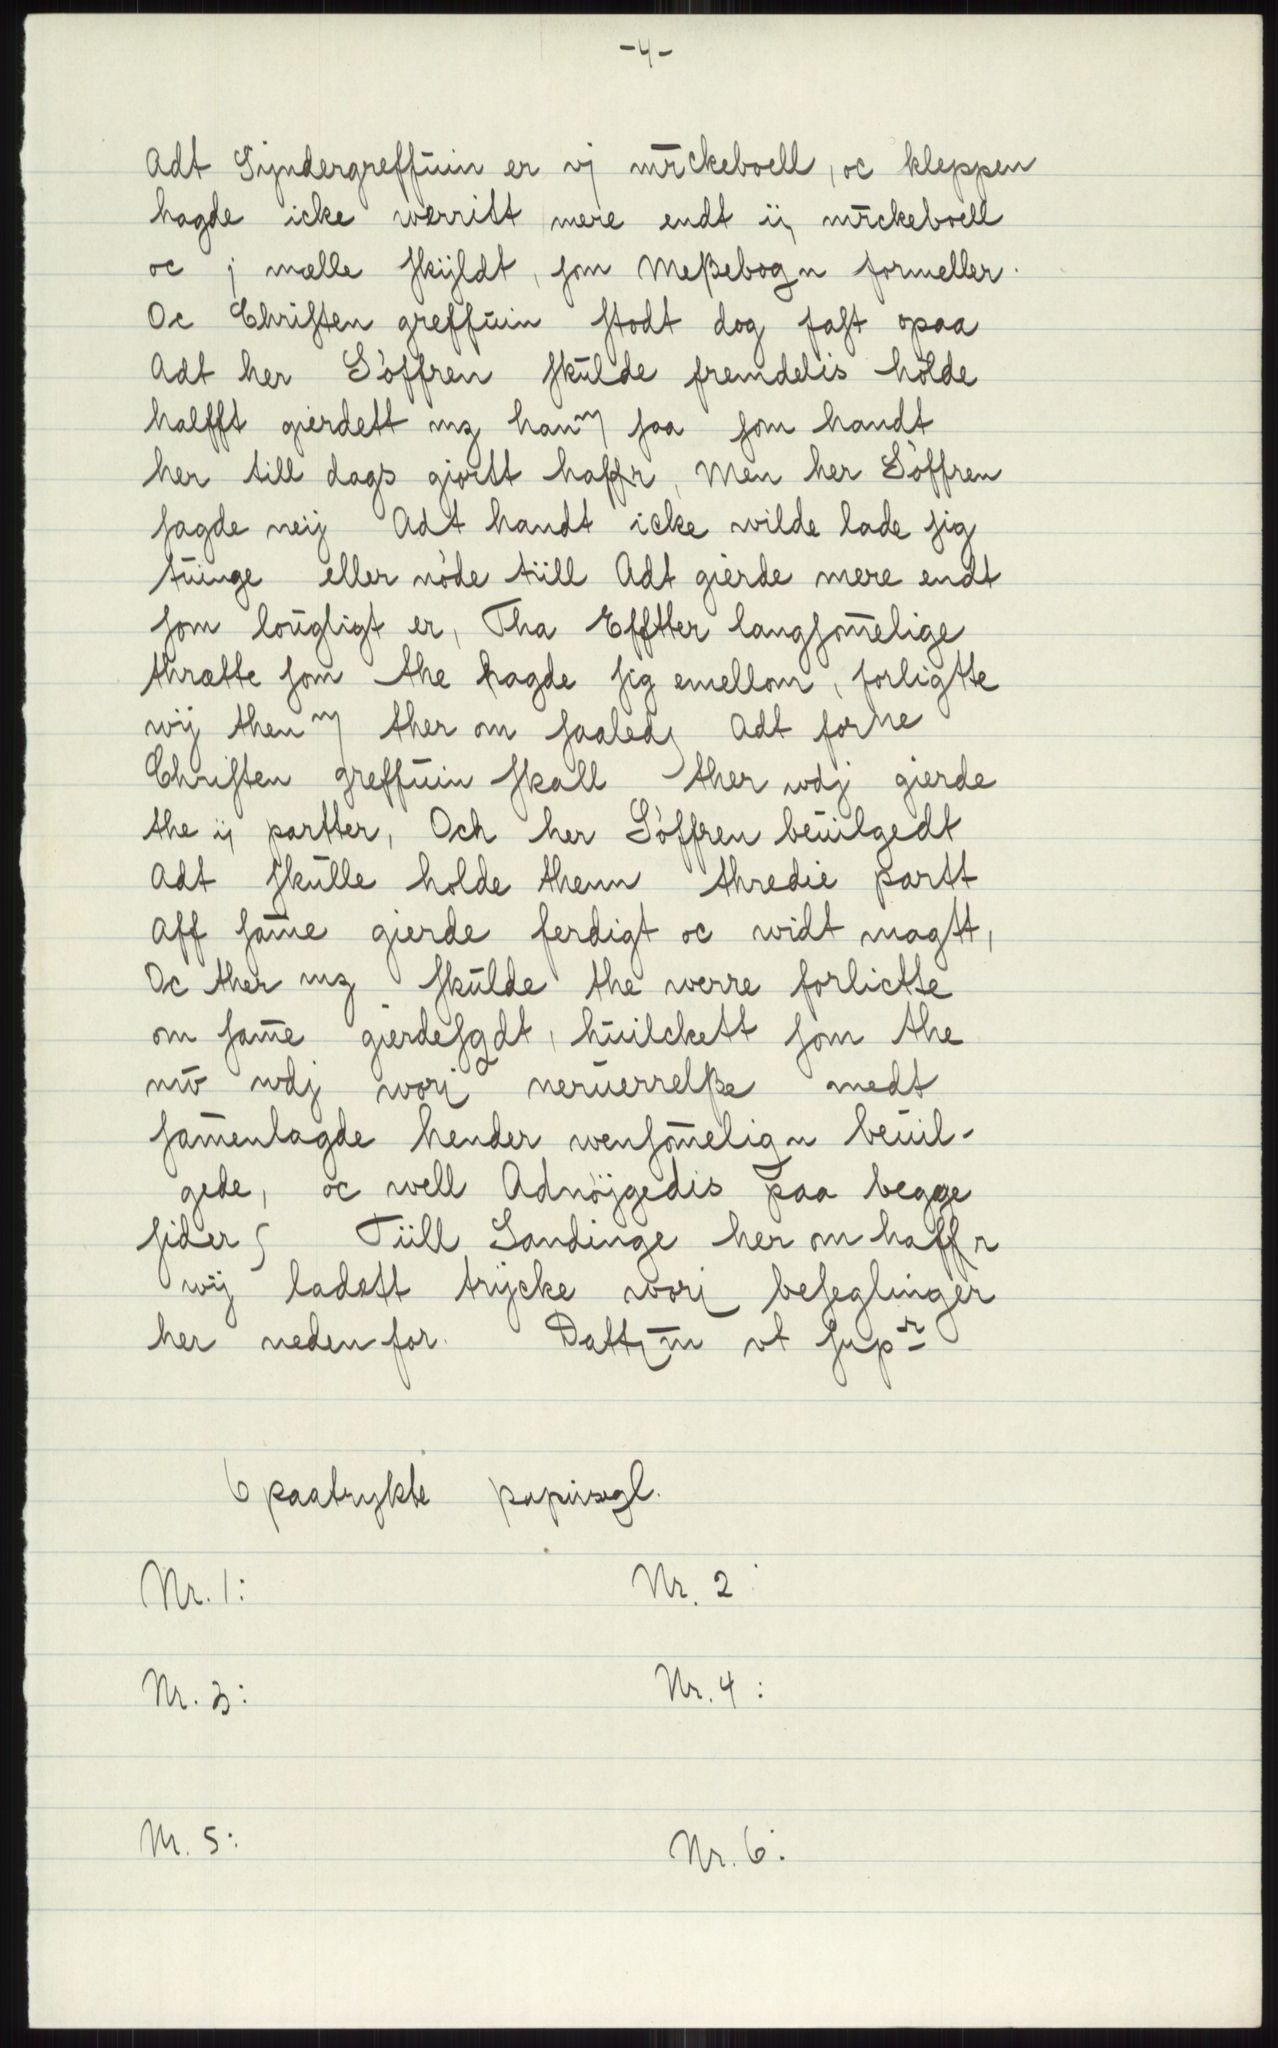 -4-
Adt Sÿndergreffuin er vj mr̄ckeboell, oc kleppen
hagde icke werritt mere endt ij mr̄ckeboell
oc j mælle skÿldt, som Meßebogn formeller.
Oc Christen greffuin stodt dog fast opaa
Adt her Söffren skulde fremdelis holde
halfft gierdett mz hanm saa som handt
her till dags giortt haffr, Men her Söffren
sagde neij Adt handt icke wilde lade sig
tuinge eller nöde tiill Adt gierde mere endt
som lougligt er, Tha Efftter langsom̄elige
thrætte som the hagde sig emellom, forligtte
wij thenm ther om saaledz Adt forne
Christen greffuin skall ther wdj gierde
the ij partter, Och her Söffren beuilgedt
Adt skulle holde thenn thredie partt
Aff sam̄e gierde ferdigt oc widt magtt,
Oc ther mz skulde the werre forlictte
om sam̄e gierdesgdt, huilckett som the
nw wdj worj neruerrelße medt
sam̄enlagde hender wensom̄elign beuil-
gede, oc well Adnöjgedis paa begge
sider Tiill Sandinge her om haffr
wij ladett trÿcke worj beseglinger
her neden for. Dattum̄ vt supr
6 paatrykte papirsegl.
Nr. 1:
Nr. 2
Nr. 3:
Nr. 4:
Nr. 5:
Nr. 6: